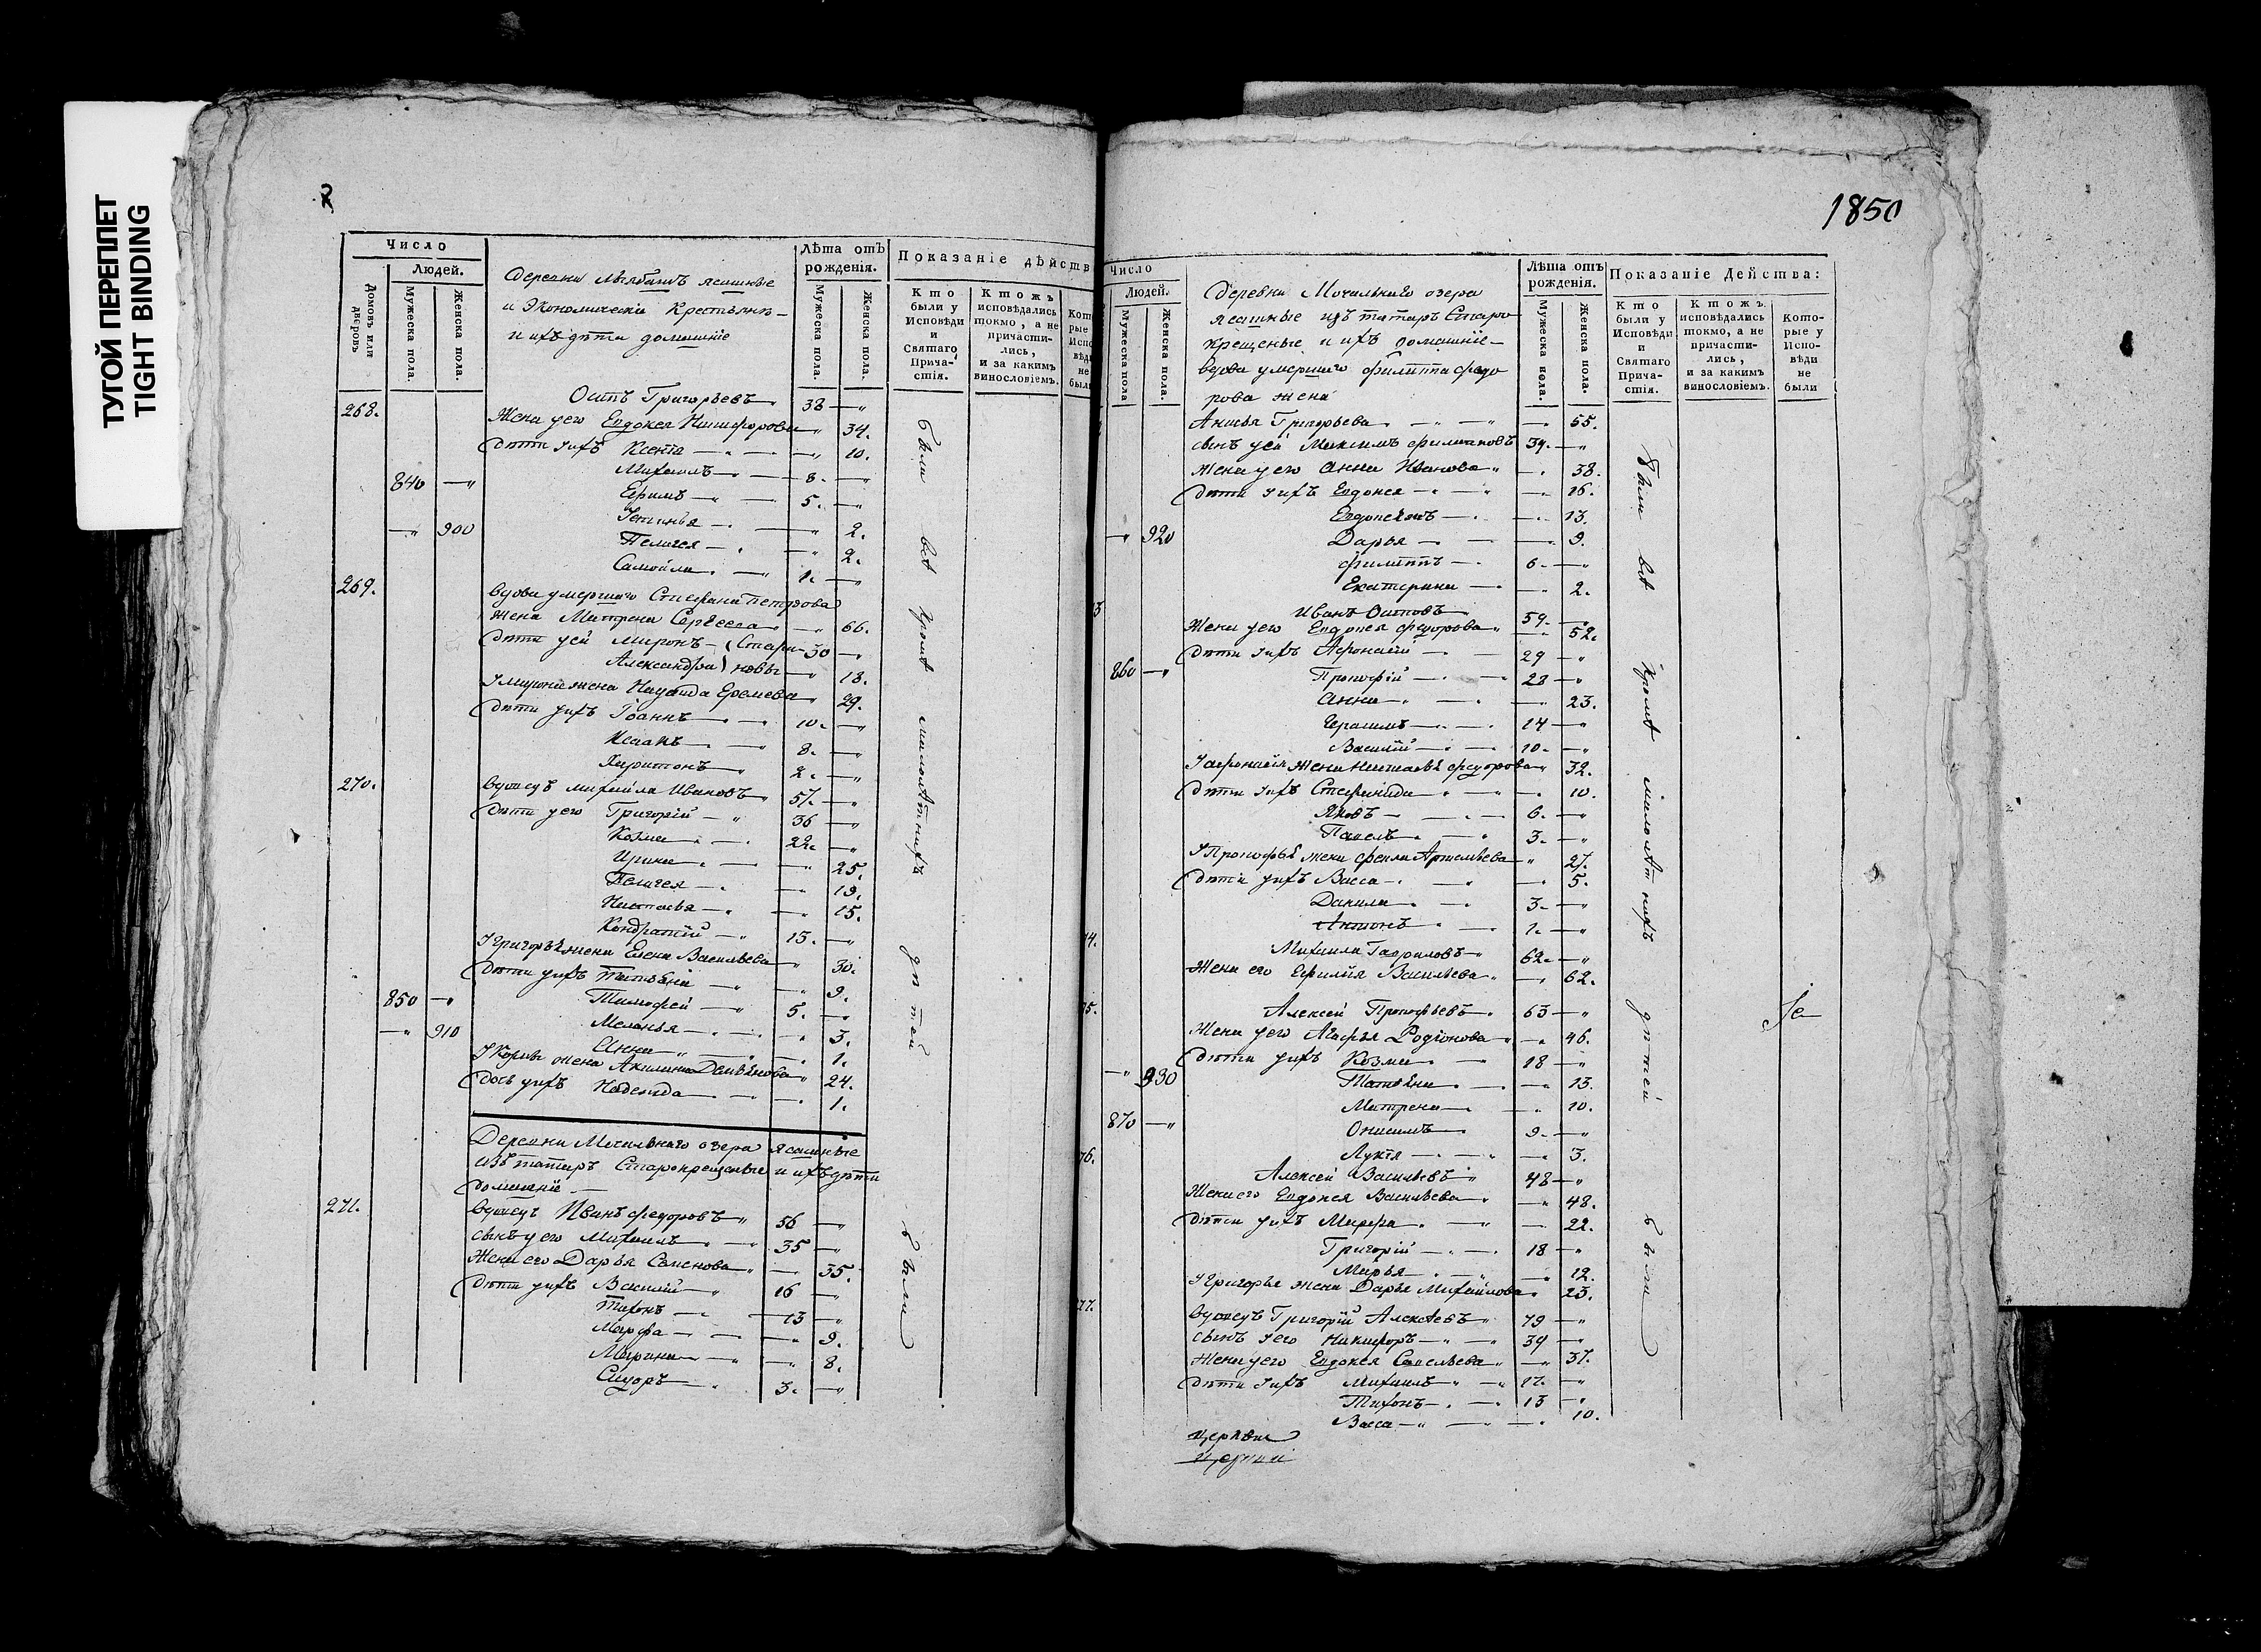 ТУГОЙ ПЕРЕПЛЕТ
TIGHT BINDING
Число
Людей.
Домовъ или дворовъ
Мужеска пола.
Женска пола.
Деревни ясашные
и Экономическіе Крестьяне
и ихъ дѣти домашніе
Лѣта отъ рожденія.
Мужеска пола.
Женска пола.
Показаніе дѣйств
Кто были у Исповѣди и Святаго Прича-стія.
Ктожъ исповѣдались токмо, а не причасти-лись, и за какимъ винословіемъ.
268. Осипъ Григорьевъ 38 — "
Жена у его Евдокея Никифорова " 34.
Дѣти у ихъ Ксенія — 10.
Михаилъ 8. — "
840 — " Ефимъ 5. — "
— " 900 Устинья " 2.
Пелагея — " 2.
Самойла 1. — "
269. Вдова умершаго Стефана Петрова
Жена Матрена Сергеева — " 66.
Дѣти у ей Миронъ — (Стефа- 30 — "
Александра) новы — " 18.
У Мирона жена Еремева — " 29.
Дѣти у ихъ Іоаннъ 10. — "
Исаакъ 8. — "
Харитонъ 2. — "
270. Вдовецъ Михайла Ивановъ 57. — "
Дѣти у его Григорій — " 36 — "
Козма 22. — "
Ирина — 25.
Пелагея — 19.
Настасья — 15.
Кондратій 15. — "
У Григорья жена Елена Васильева " 30.
Дѣти у ихъ Татьяна — " 9.
850 — " Тимофей — " 5. — "
— " 910 Меланья — " 3.
Анна " — 1.
У Козмы жена Акилина " 24.
Дочь у ихъ Надежда — 1.
Деревни Мочильнаго озера ясашные
изъ татаръ Старокрещеные и ихъ дѣти
домашніе —
271. Вдовецъ Иванъ Федоровъ " 56 — "
сынъ у его Михаилъ — " 35 — "
Жена его Дарья Семенова " — 35.
Дѣти у ихъ Василій — " 16 — "
Тихонъ — 13 — "
Марфа — " 9.
Марина — " 8.
Сидоръ — 3. — "
Были всѣ кромѣ малолѣтнихъ дѣтей
были
1850
Число
Людей.
Мужеска пола
Женска пола.
Деревни Мочильнаго озера
ясашные изъ татаръ Старо
крещеные и ихъ домашніе —
вдова умершаго Филиппа Федо
рова жена
Лѣта отъ рожденія.
Мужеска пола.
Женска пола.
Показаніе Действа:
Кто были у Исповѣди и Святаго Прича-стія.
Ктожъ исповѣдались токмо, а не причасти-лись, и за какимъ винословіемъ.
Кото-рые у Испо-вѣди не были
Анисья Григорьева — " — 55.
сынъ у ей Максимъ Филиповъ 39. — "
Жена у его Анна Иванова " — 38.
Дѣти у ихъ Евдокея — " — 16.
— 13.
— " 920 Дарья — 9.
Филиппъ — 6. — "
Екатерина — " 2.
Иванъ Осиповъ 59. — "
Жена у его Евдокея Федорова " — 52.
Дѣти у ихъ Афонасій 29 — "
860 — " Прокофій — 28 — "
Анна — 23.
Герасимъ 14 — "
Василій 10. — "
У Афонасія жена Настасья Федорова " 32.
Дѣти у ихъ Стефанида — 10.
Яковъ — 6. — "
Павелъ 3. — "
У Прокофья жена Фекла Артемьева " 27.
Дѣти у ихъ Васса — 5.
Данила 3. — "
Антонъ 1. — "
Михаила Гавриловъ 62. — "
Жена его Васильева " — 62.
Алексей Прокофьевъ 63 — "
Жена у его Агафья Родіонова " — 46.
Дѣти у ихъ Козма 18 — "
— " 930 Татьяна — 13.
Матрена — 10.
870 — " Онисимъ 9. — "
— 3.
Алексей Васильевъ 48 — "
Жена его Евдокея Васильева — 48.
Дѣти у ихъ Марфа — 22.
Григорій 18 — "
Марья — " 12.
У Григорья жена Дарья Михайлова " 23.
вдовецъ Григорій Алексѣевъ " 79 — "
сынъ у его Никифоръ 39 — "
Жена у его Евдокея Савельева " — 37.
Дѣти у ихъ Михаилъ 17. — "
Тихонъ 13 — "
Васса — " — 10.
церкви
Были всѣ кромѣ малолѣтнихъ дѣтей
были